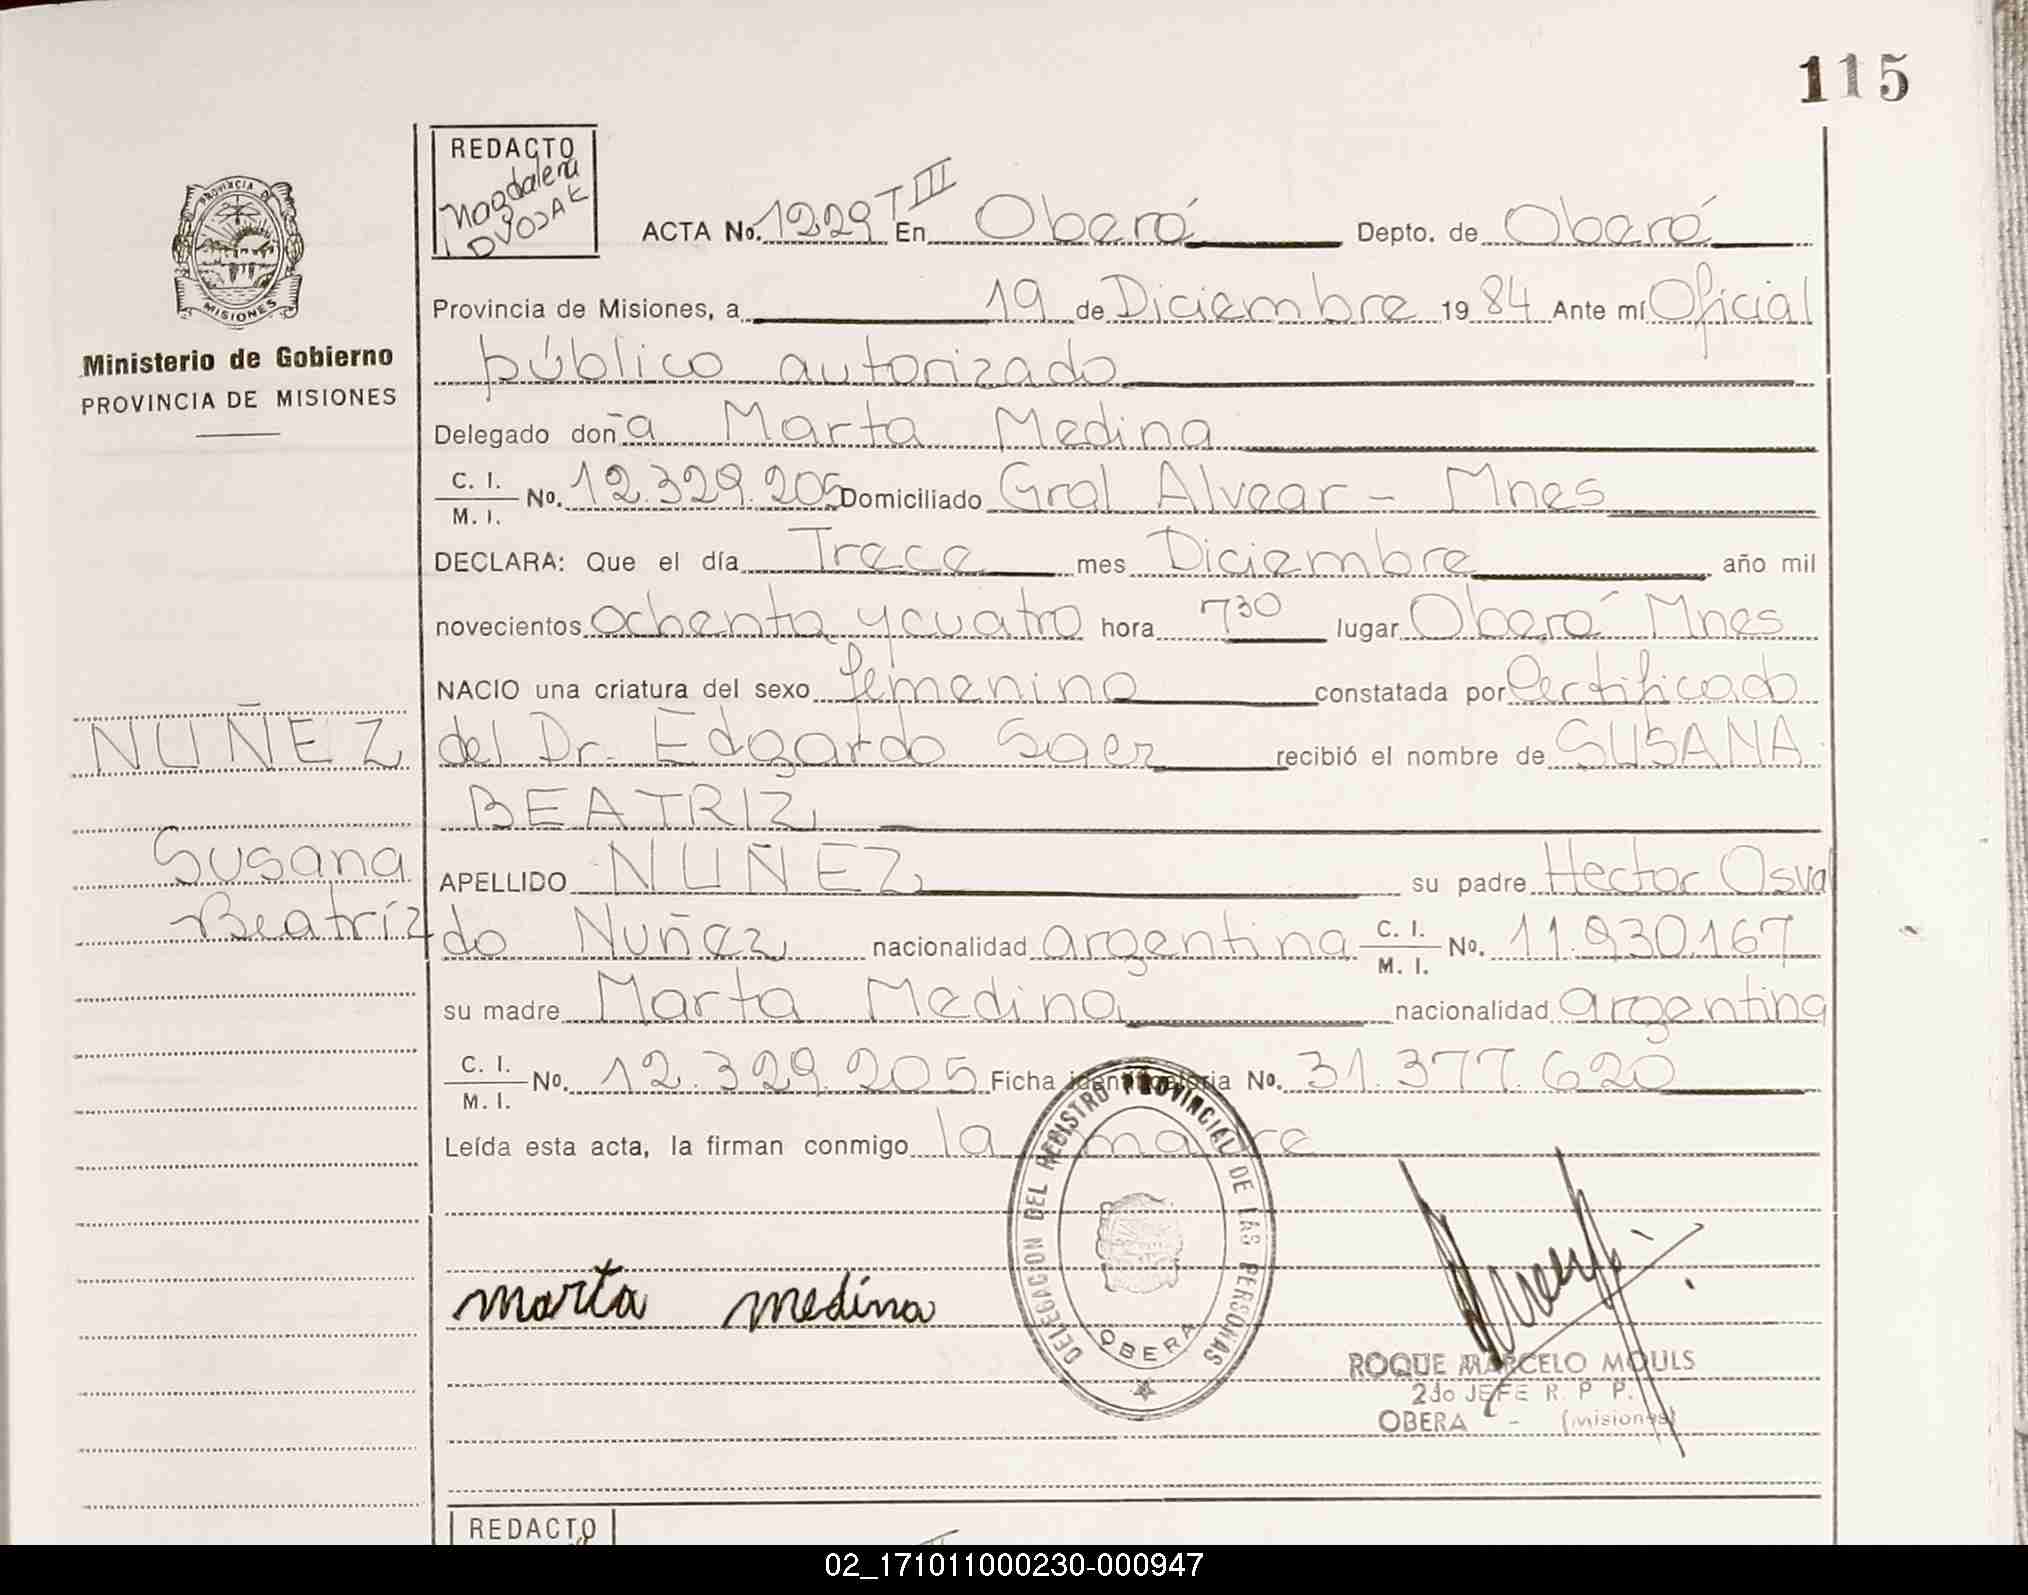 115
REDACTO
Magdalena
DVOJAK
PROVINCIA DE
MISIONES
Ministerio de Gobierno
PROVINCIA DE MISIONES
ACTA No. 1229 T III En Oberá Depto. de Oberá
Provincia de Misiones, a 19 de Diciembre 1984 Ante mí Oficial
público autorizado
Delegado doña Marta Medina
C. I.
M. I. No. 12.329.205 Domiciliado Gral Alvear - Mnes
DECLARA: Que el día Trece mes Diciembre año mil
novecientos ochenta y cuatro hora 730 lugar Oberá Mnes
NACIO una criatura del sexo femenino constatada por Certificado
NUÑEZ del Dr. Edgardo Saez recibió el nombre de SUSANA
BEATRIZ
Susana APELLIDO NUÑEZ su padre Hector Osval
Beatríz do Nuñez nacionalidad argentina C. I. M. I. No. 11.930.167
su madre Marta Medina nacionalidad argentina
C. I.
M. I. No. 12.329.205 Ficha identificatoria No. 31.377.620
Leída esta acta, la firman conmigo la madre
marta medina
DELEGACION DEL REGISTRO PROVINCIAL DE LAS PERSONAS
OBERA
ROQUE MARCELO MOULS
2do JEFE R. P P.
OBERA - (Misiones)
REDACTO
02_171011000230-000947